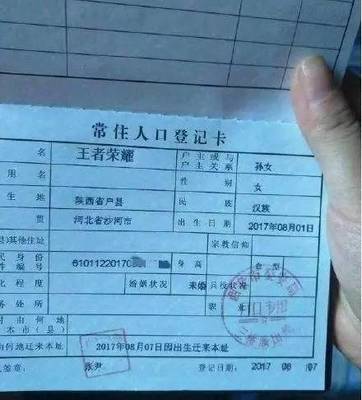 常住人口登记卡
名 王者荣耀 户主或与户主关系 孙女
用名 性别 女
生地 陕西省户县 民族 汉族
贯 河北省沙河市 出生日期 2017年08月01日
其他住址 宗教信仰
民身份件编号 6101122017080 身高 血型
化程度 婚姻状况 未婚 兵役状况
务处所 职业
时由何地本市(县)
何地迁来本址 2017年08月07日因出生迁来本址
人签章 登记日期 2017 08 07